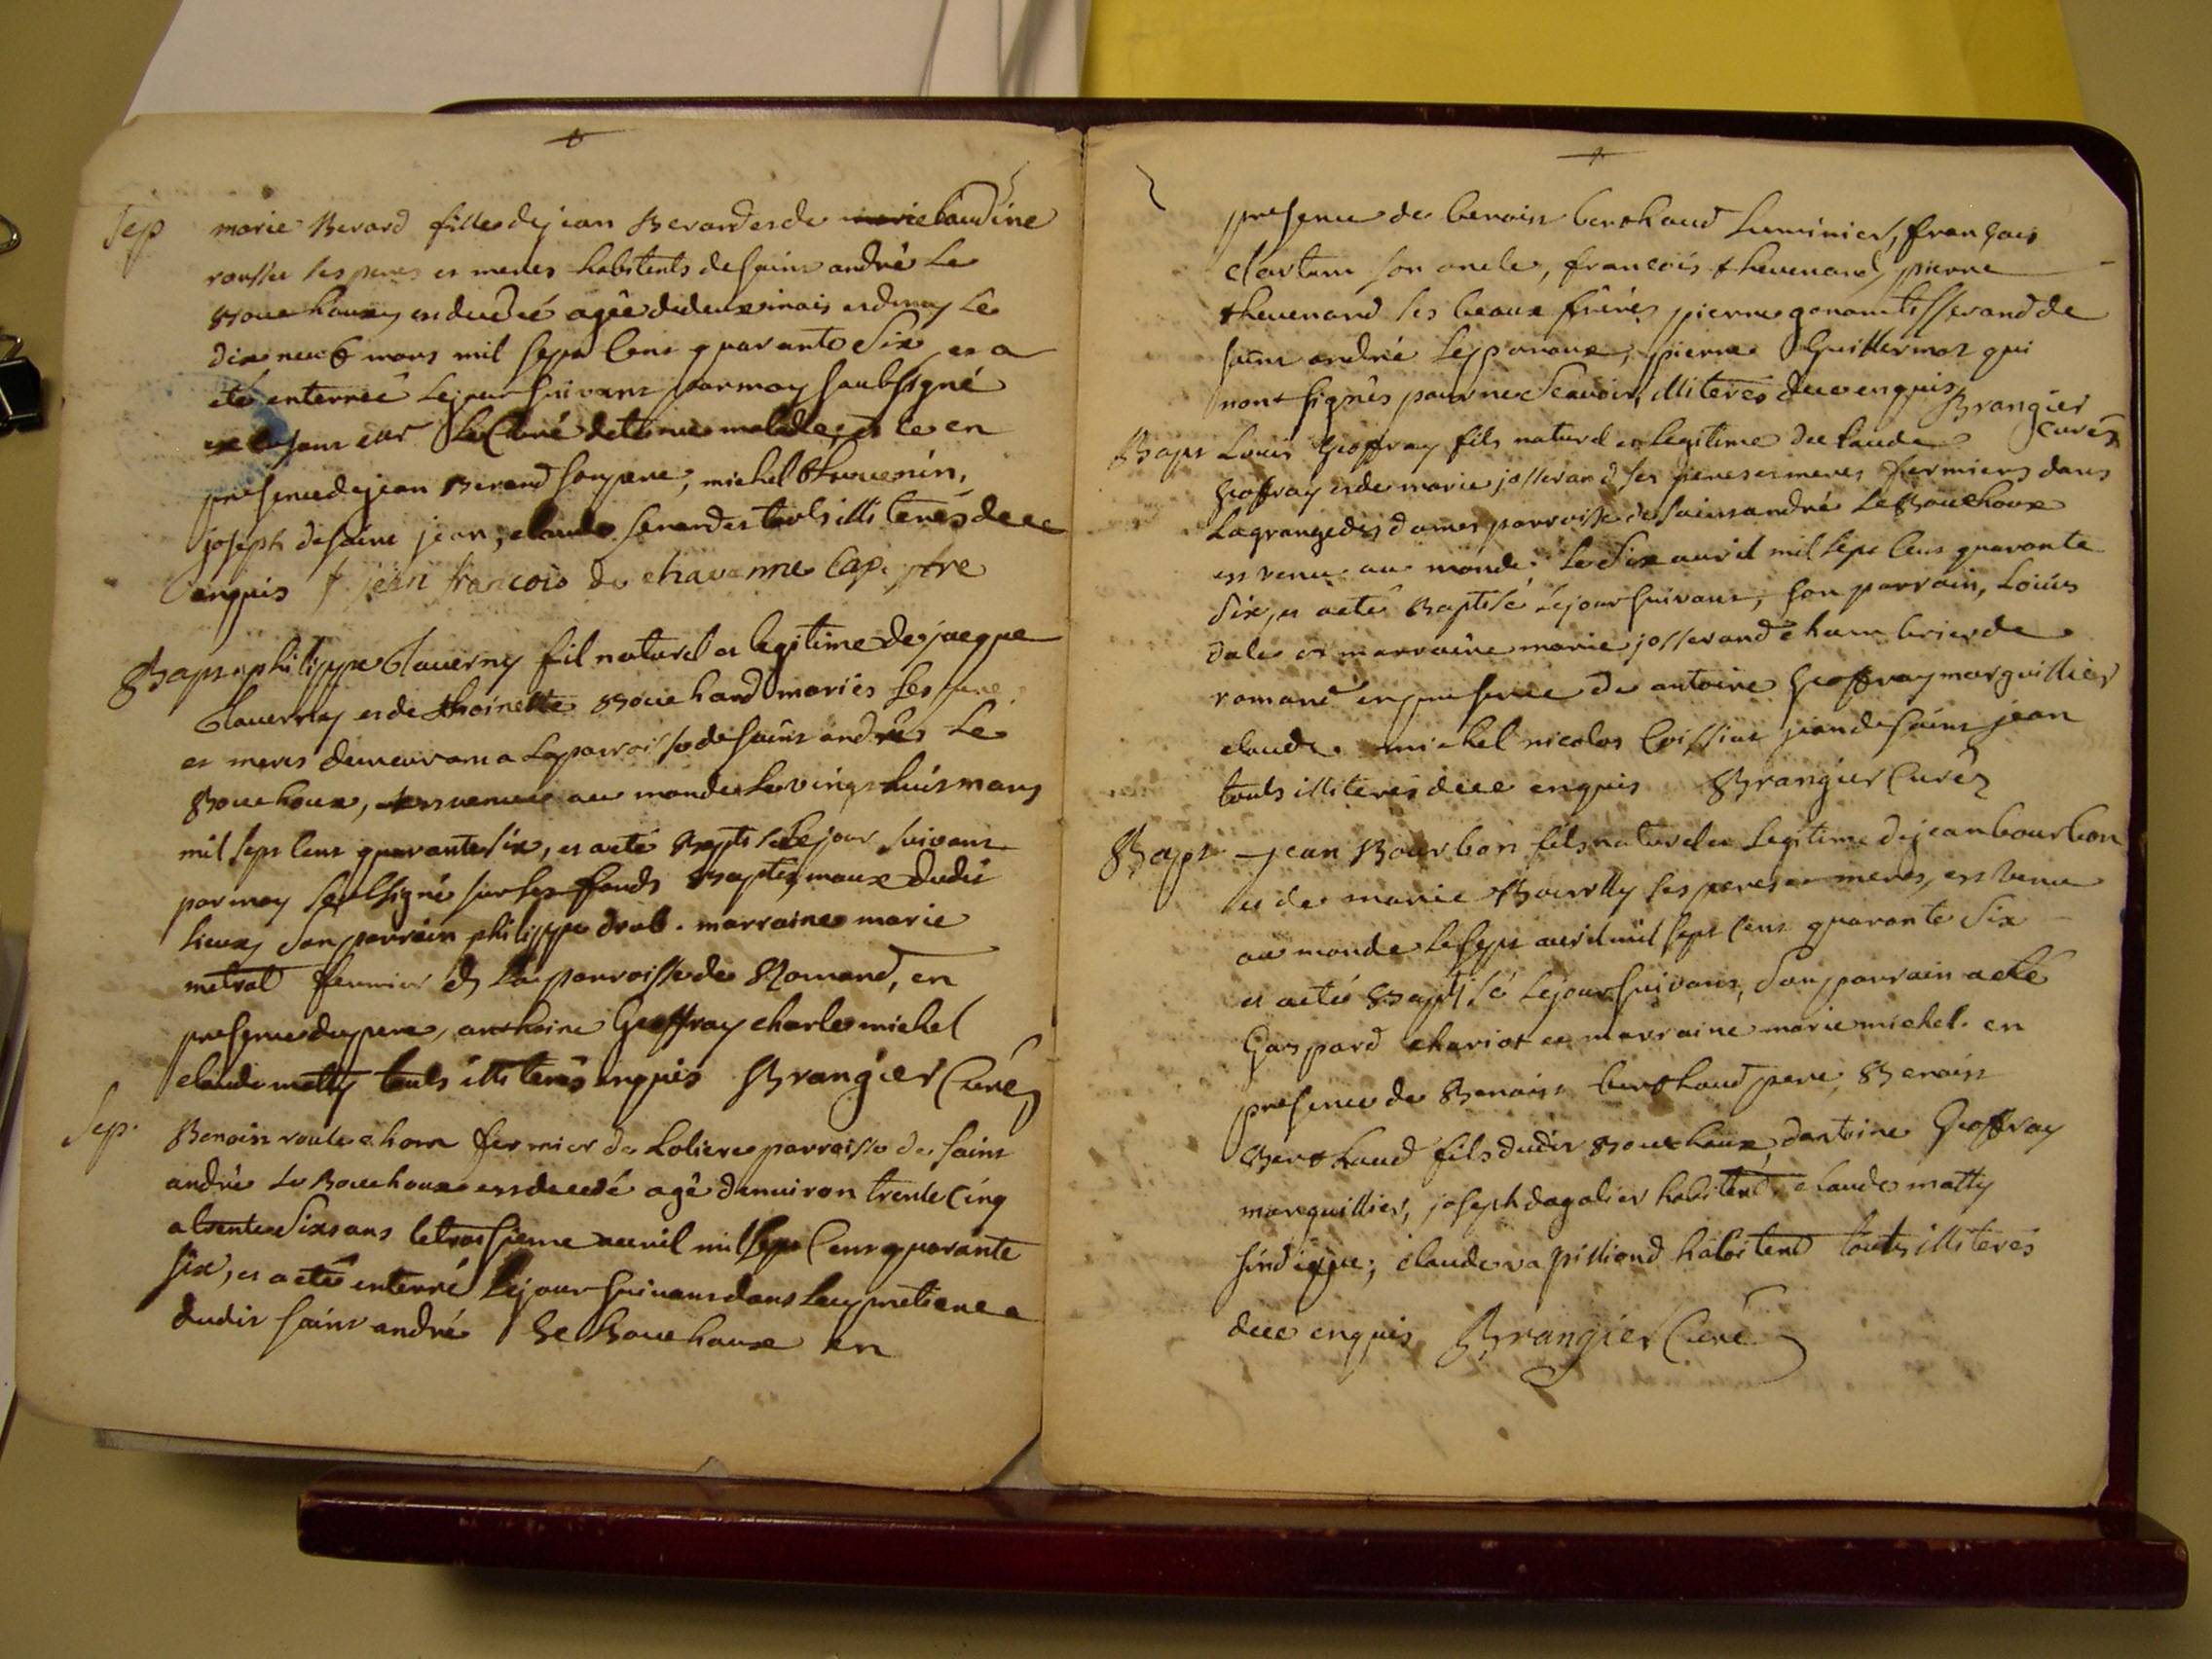 Sep marie Berard fille de jean Berard et de claudine
rousset ses peres et meres habitents de saint andré le
Bouchoux, est decedé agée de deux mois et demy le
dix neuf mars mil sept cent quarante six et a
été enterreé le jour suivant par moy soubsigné
Le Curé detenu malade, et ce en
presence de jean Berard son pere, michel thevenin,
joseph de saint jean, claude touts illiterés de ce
enquis f jean francois de chavanne Cap. ptre
Bapt philippe Taverny fil naturel et legitime de jacque
Taverny et de thoinette Bouchard mariés ses pere
et meres demeurant a la parroisse de saint andré le
Bouchoux, est venu au monde le vingt huit mars
mil sept cent quarante six, et a eté Baptisé le jour suivant
par moy soubsigné sur les fonds Baptismaux dudit
lieux, son parrain philippe drub. marraine marie
metral fermier de la parroisse de Romand, en
presence du pere, anthoine Geoffray charle michel
claude matty touts illiterés enquis Brangier Curé
Sep. Benoist fermier de Loliere parroisse de saint
andré le Bouchoux est decedé agé d'environ trente cinq
a trente six ans le troisieme avril mil sept cent quarante
six, et a eté enterré le jour suivant dans le cymetiere
dudit saint andré le Bouchoux en
presence de benoist berthaud luminier, françois
son oncle, francois thevenard, pierre
thevenard ses beaux freres pierre tisserand de
saint andré le panoux, pierre Guillermot qui
n'ont signés pour ne scavoir, illiterés de ce enquis Brangier
curé
Bapt Louis Geoffray fils naturel et legitime de claude
Geoffray et de marie josserand ses peres et meres fermiers dans
la grange des dames parroisse de saint andré le Bouchoux
est venu au monde le six avril mil sept cent quarante
six, et a eté Baptisé le jour suivant, son parrain, Loüis
dale et marraine marie josserand de
romand en presence de antoine Geoffray marguillier
claude michel nicolas jean de saint jean
touts illiterés de ce enquis Brangier Curé
Bapt jean Bourbon fils naturel et legitime de jean bourbon
et de marie Bourlly ses peres et meres, est venu
au monde le sept avril mil sept cent quarante six
et a eté Baptisé le jour suivant, son parrain a eté
Gaspard chariot et marraine marie michel. en
presence de Benoist berthaud pere, Benoist
Berthaud fils dudit Bouchoux, d'antoine Geoffray
marguillier, joseph dagalier habitent, claude matty
sindique, claude vapilliond habitent touts illiterés
de ce enquis Brangier Curé